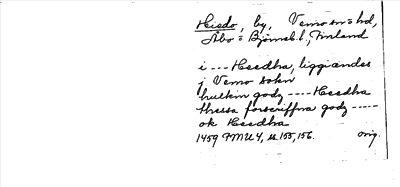 Hiedo, by, Vemo sn o hd,
Åbo = Björneb. l., Finland
i --- Heedha, liggiandes
j Vemo sokn
huilkin godz ---- Heedha
thessa forscriffna godz -----
ok Heedha
1459 FMU 4, s. 155, 156. orig.